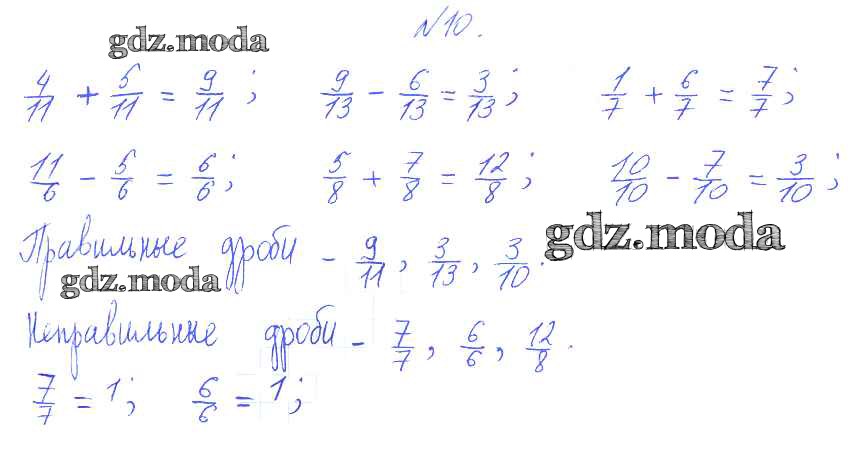 №10.
gdz.moda
4/11 + 5/11 = 9/11 ; 9/13 - 6/13 = 3/13 ; 1/7 + 6/7 = 7/7 ;
11/6 - 5/6 = 6/6 ; 5/8 + 7/8 = 12/8 ; 10/10 - 7/10 = 3/10 ;
Правильные дроби - 9/11 , 3/13 , 3/10 .
gdz.moda
gdz.moda
Неправильные дроби - 7/7 , 6/6 , 12/8 .
7/7 = 1 ; 6/6 = 1 ;